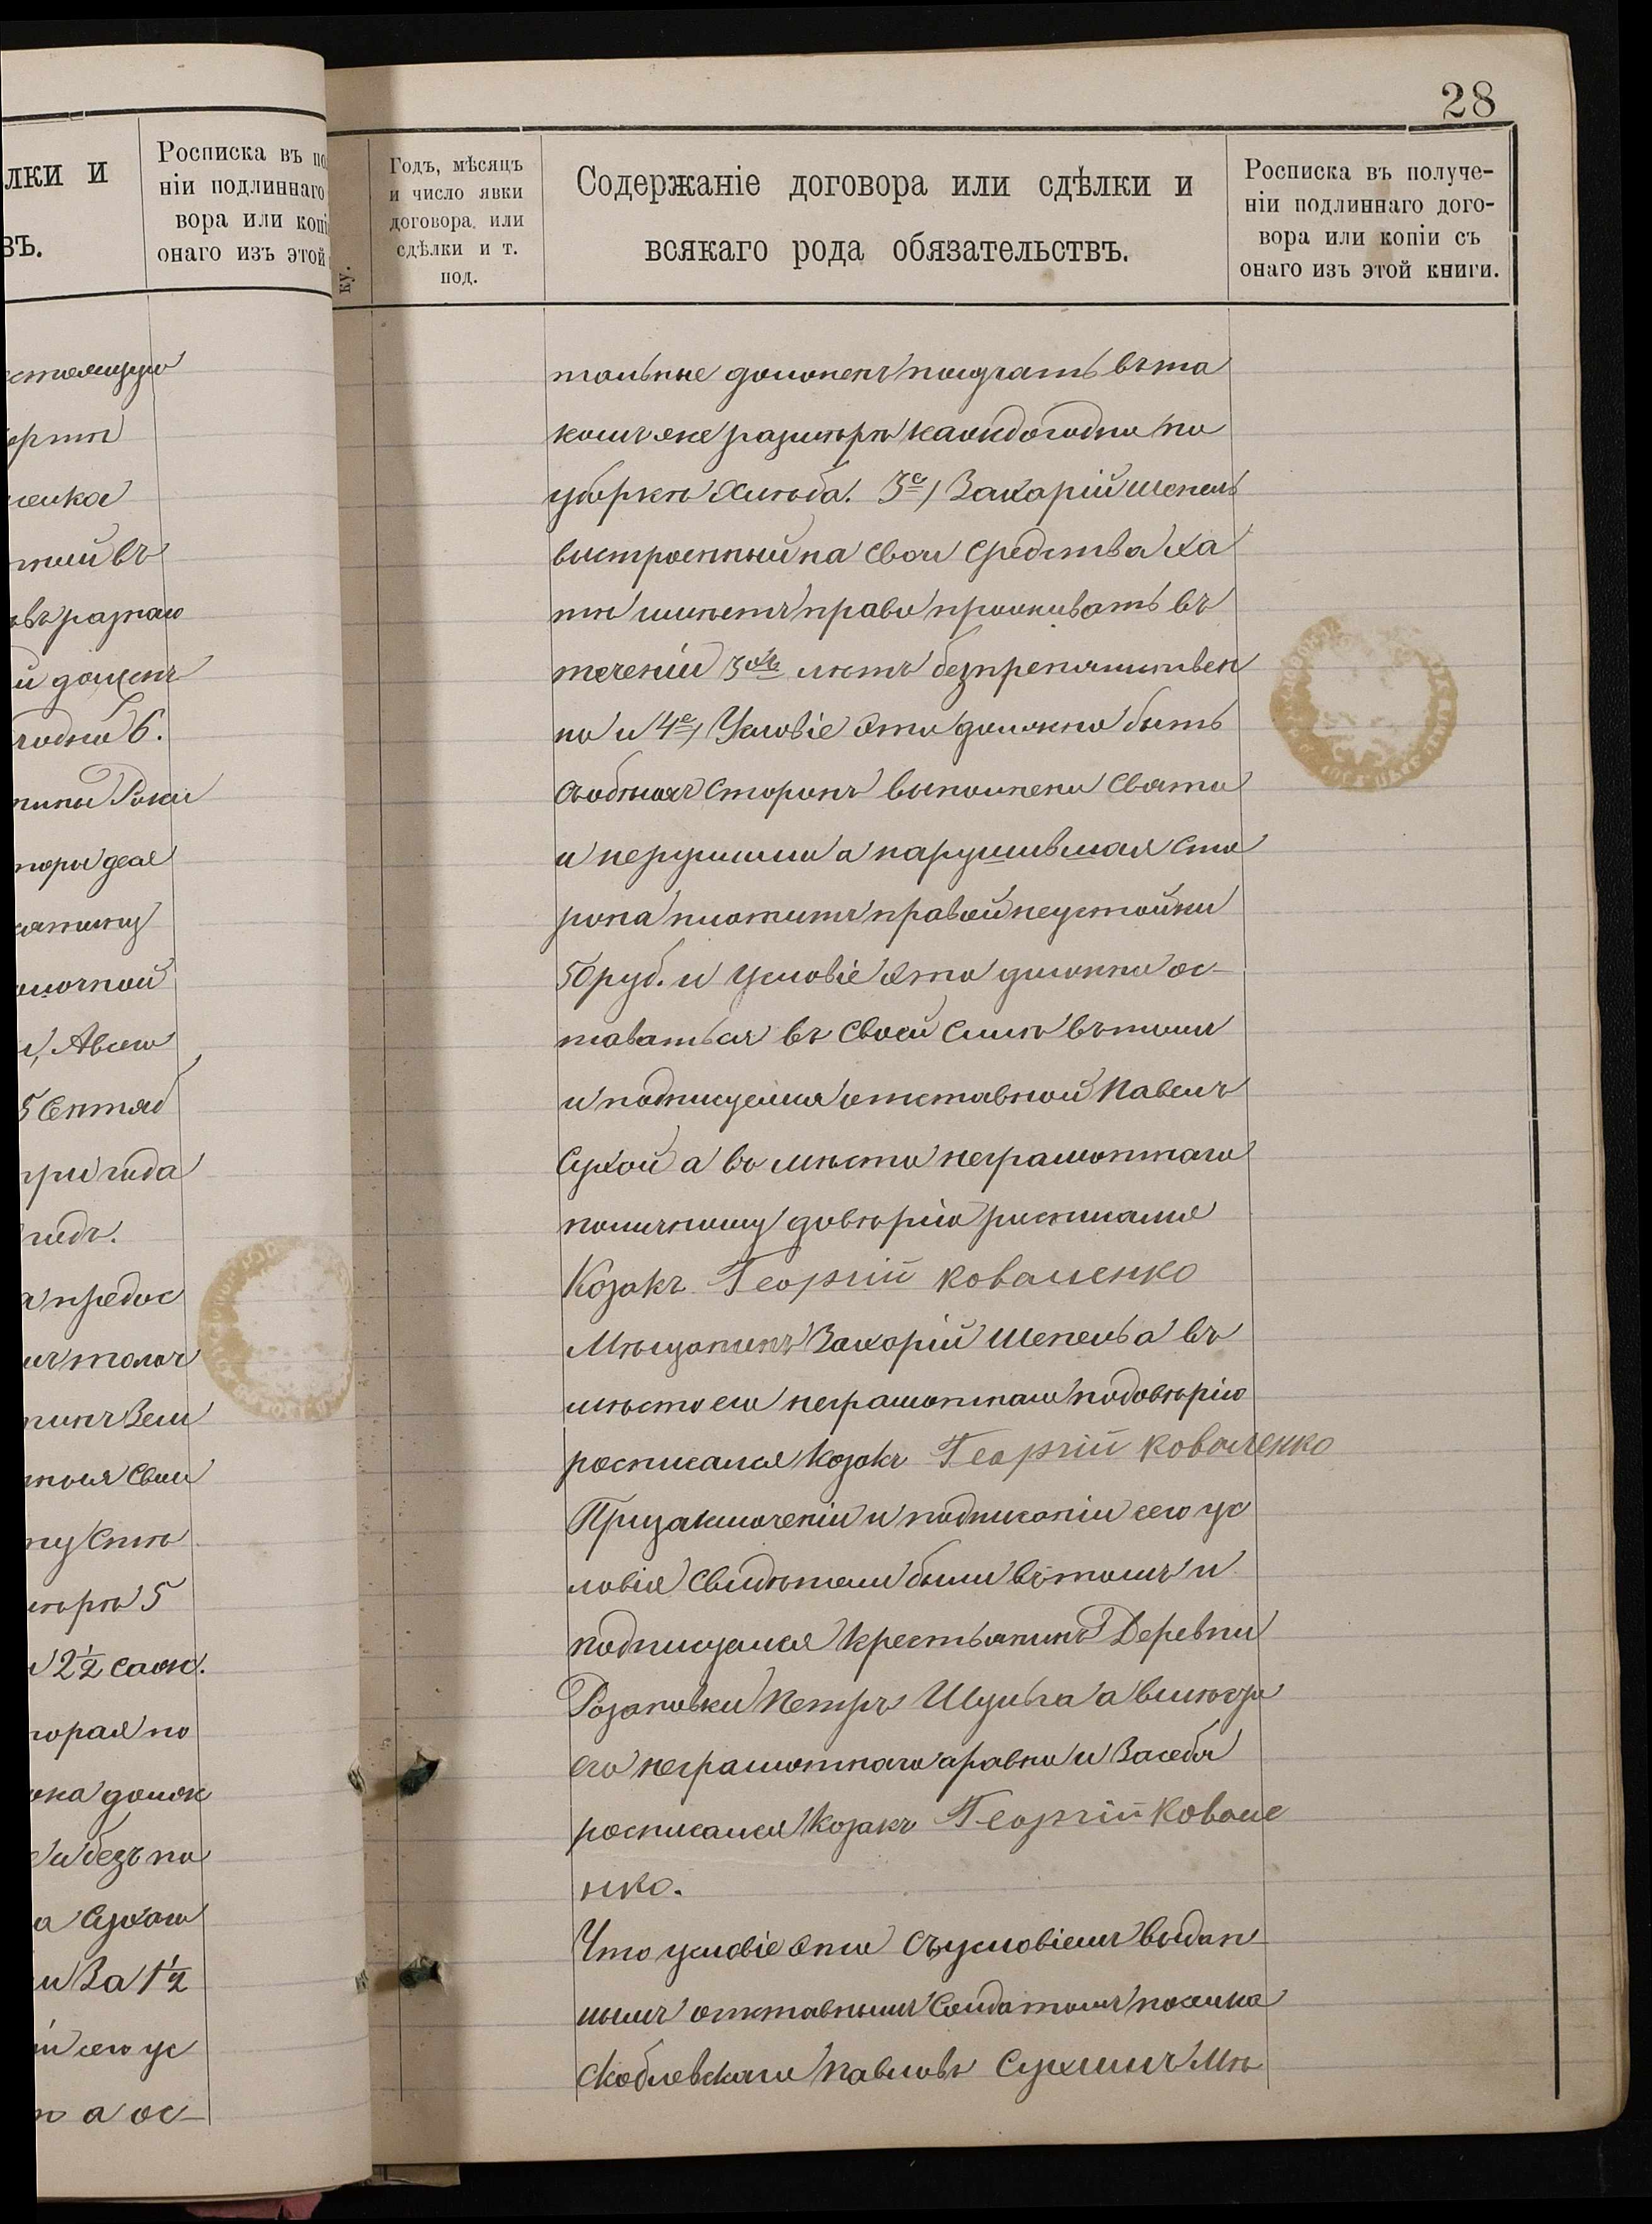 28
лки и
въ.
Росписка въ по
ніи подлиннаго
вора или копі
онаго изъ этой
ку.
Годъ, мѣсяцъ
и число явки
договора или
сдѣлки и т.
под.
Содержаніе договора или сдѣлки и
всякаго рода обязательствъ.
Росписка въ получе-
ніи подлиннаго дого-
вора или копіи съ
онаго изъ этой книги.
тій въ
годно 6.
5 Сентяб
три года
годъ.
а предос
ну Стѣ
ѣрѣ 5
и 2½ саж.
торая по
ока долж
и безъ по
а Сухого
и За 1½
ій сего ус
а ос-
тольные долженъ получать въ та
комъ же размѣрѣ каждогодно по
уборкѣ хлѣба. 3е) Захарій Шепель
выстроенный на свои средства ха
ты имѣетъ право проживать въ
теченіи 3хъ лѣтъ безпрепятствен
но и 4е) Условіе это должно быть
съ обѣихъ сторонъ выполнено свято
и нерушимо а нарушившая сто
рона платитъ правой неустойки
50 руб. и условіе это должно ос-
таваться въ своей силѣ въ томъ
и подписуемся отставной Павелъ
Сухой а вомѣсто неграмотнаго
поличному довѣрію росписался
Козакъ Георгій коваленко
Мѣщанинъ Захорій Шепель а въ
мѣсто его неграмотнаго подовѣрію
росписался Козакъ Георгій коваленко
Призаключеніи и подписаніи сего ус
ловія свидѣтели были въ томъ и
подписуемся крестьянинъ Деревни
Розановки Петръ Шульга а вмѣсто
его неграмотнаго а равно и За себя
росписался Козакъ Георгій Ковале
нко.
Что условіе это съ условіемъ выдан
нымъ отставнымъ Солдатомъ поселка
Скоблевскаго Павловъ Сухимъ Мѣ